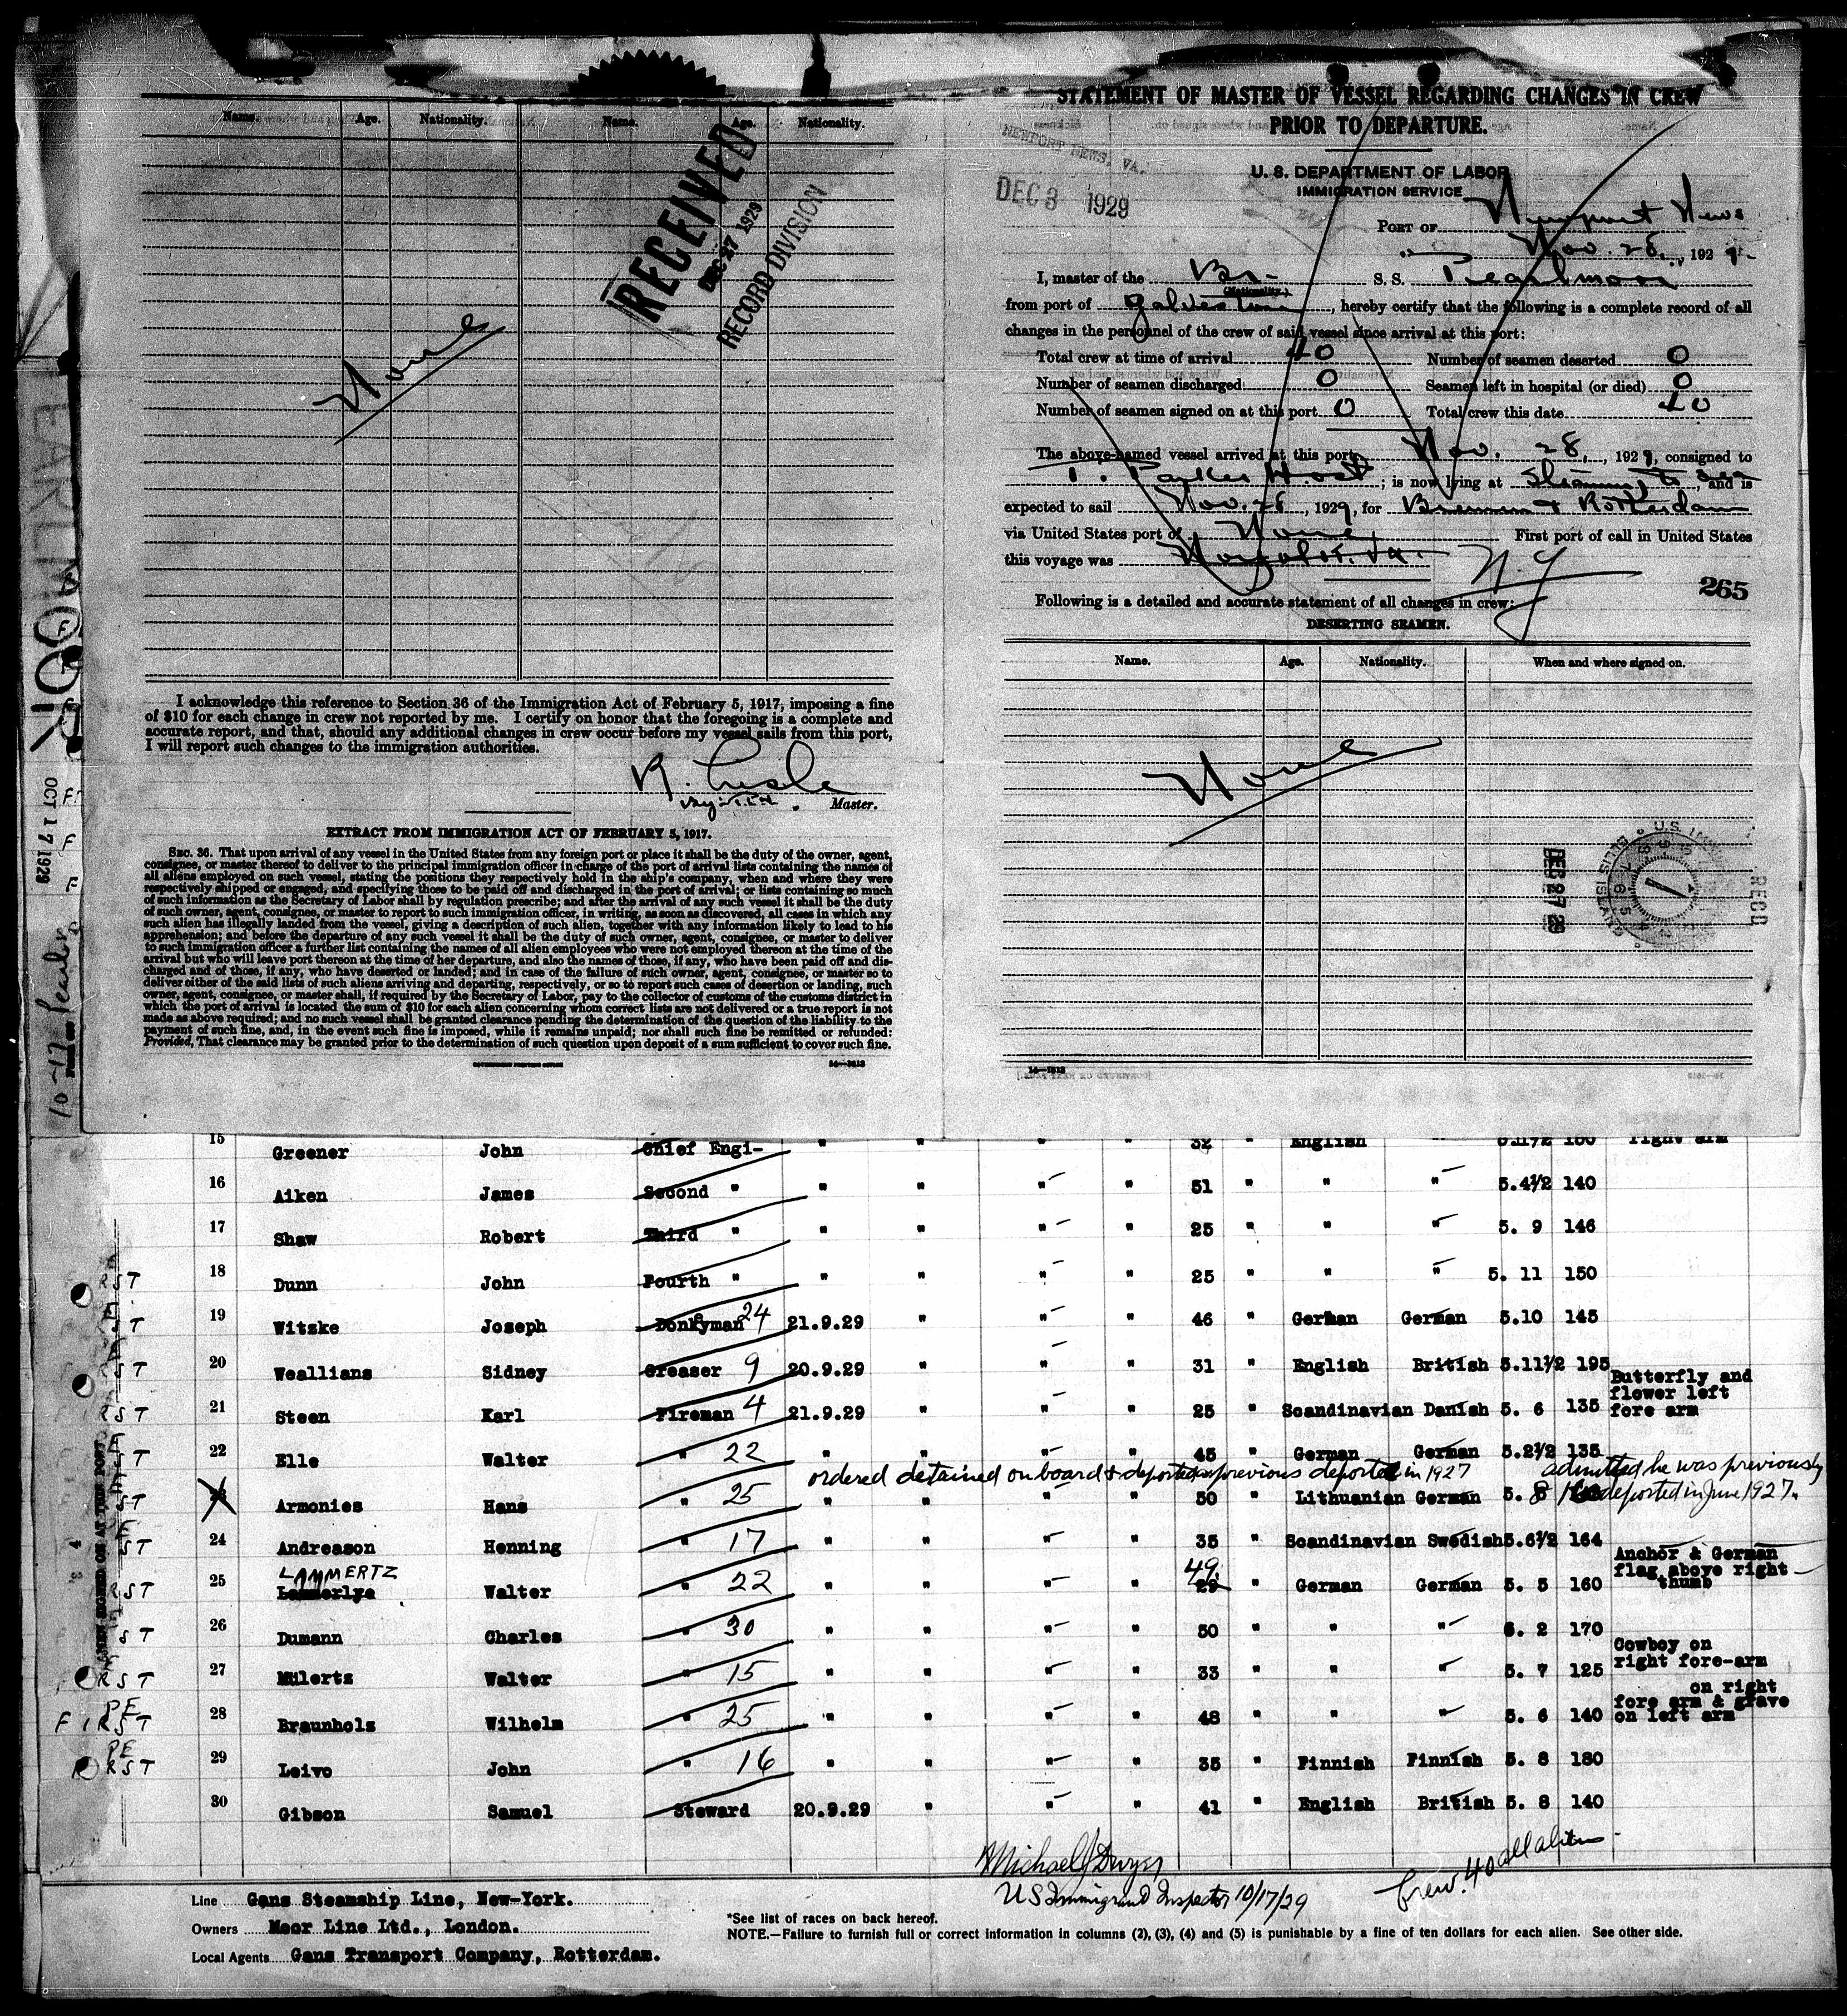 Name. Age. Nationality. Name. Age. Nationality.
RECEIVED
DEC 27 1929
RECORD DIVISION
None
I acknowledge this reference to Section 36 of the Immigration Act of February 5, 1917, imposing a fine
of $10 for each change in crew not reported by me. I certify on honor that the foregoing is a complete and
accurate report, and that, should any additional changes in crew occur before my vessel sails from this port,
I will report such changes to the immigration authorities.
Master.
EXTRACT FROM IMMIGRATION ACT OF FEBRUARY 5, 1917.
SEC. 36. That upon arrival of any vessel in the United States from any foreign port or place it shall be the duty of the owner, agent,
consignee, or master thereof to deliver to the principal immigration officer in charge of the port of arrival lists containing the names of
all aliens employed on such vessel, stating the positions they respectively hold in the ship's company, when and where they were
respectively shipped or engaged, and specifying those to be paid off and discharged in the port of arrival; or lists containing so much
of such information as the Secretary of Labor shall by regulation prescribe; and after the arrival of any such vessel it shall be the duty
of such owner, agent, consignee, or master to report to such immigration officer, in writing, as soon as discovered, all cases in which any
such alien has illegally landed from the vessel, giving a description of such alien, together with any information likely to lead to his
apprehension; and before the departure of any such vessel it shall be the duty of such owner, agent, consignee, or master to deliver
to such immigration officer a further list containing the names of all alien employees who were not employed thereon at the time of the
arrival but who will leave port thereon at the time of her departure, and also the names of those, if any, who have been paid off and dis-
charged and of those, if any, who have deserted or landed; and in case of the failure of such owner, agent, consignee, or master so to
deliver either of the said lists of such aliens arriving and departing, respectively, or so to report such cases of desertion or landing, such
owner, agent, consignee, or master shall, if required by the Secretary of Labor, pay to the collector of customs of the customs district in
which the port of arrival is located the sum of $10 for each alien concerning whom correct lists are not delivered or a true report is not
made as above required; and no such vessel shall be granted clearance pending the determination of the question of the liability to the
payment of such fine, and, in the event such fine is imposed, while it remains unpaid; nor shall such fine be remitted or refunded:
Provided, That clearance may be granted prior to the determination of such question upon deposit of a sum sufficient to cover such fine.
GOVERNMENT PRINTING OFFICE
STATEMENT OF MASTER OF VESSEL REGARDING CHANGES IN CREW
PRIOR TO DEPARTURE.
NEWPORT NEWS, VA.
DEC 3 1929
U. S. DEPARTMENT OF LABOR
IMMIGRATION SERVICE
PORT OF Newport News
Nov. 28, 1929
I, master of the Br- S. S. Pearlmoor
(Nationality)
from port of Galveston, hereby certify that the following is a complete record of all
changes in the personnel of the crew of said vessel since arrival at this port:
Total crew at time of arrival 40 Number of seamen deserted 0
Number of seamen discharged 0 Seamen left in hospital (or died) 0
Number of seamen signed on at this port 0 Total crew this date 40
The above-named vessel arrived at this port Nov. 28, 1929, consigned to
T. Parker Host; is now lying at Stream, and is
expected to sail Nov. 28, 1929, for Bremen & Rotterdam
via United States port of None First port of call in United States
this voyage was Norfolk. Va. N.Y
265
Following is a detailed and accurate statement of all changes in crew:
DESERTING SEAMEN.
Name. Age. Nationality. When and where signed on.
None
DEC 27 29
RECD
14—1813
PEARLMOOR
OCT 17 1929
15 Greener John Chief Engi- " " " " 32 " English " 5.11½ 180 right arm
16 Aiken James Second " " " " " 51 " " " 5.4½ 140
17 Shaw Robert Third " " " " " 25 " " " 5. 9 146
18 Dunn John Fourth " " " " " 25 " " " 5. 11 150
19 Witzke Joseph Donkyman 24 21.9.29 " " " 46 " German German 5.10 145
20 Weallians Sidney Greaser 9 20.9.29 " " " 31 " English British 5.11½ 195
21 Steen Karl Fireman 4 21.9.29 " " " 25 " Scandinavian Danish 5. 6 135 Butterfly and flower left fore arm
22 Elle Walter " 22 " " " " 45 " German German 5.2½ 135
ordered detained on board & deported as previous deported in 1927 admitted he was previously
Armonies Hans " 25 " " " " 50 " Lithuanian German 5. 8 deported in June 1927.
24 Andreason Henning " 17 " " " " 35 " Scandinavian Swedish 5.6½ 164
LAMMERTZ
25 Walter " 22 " " " " 49 29 " German German 5. 5 160 Anchor & German flag above right thumb
26 Dumann Charles " 30 " " " " 50 " " " 6. 2 170
27 Milertz Walter " 15 " " " " 33 " " " 5. 7 125 Cowboy on right fore-arm
28 Braunholz Wilhelm " 25 " " " " 48 " " " 5. 6 140 on right fore arm & grave on left arm
29 Leivo John " 16 " " " " 35 " Finnish Finnish 5. 8 180
30 Gibson Samuel Steward 20.9.29 " " " 41 " English British 5. 8 140
Michael J Dwyer
US Immigrant Inspector 10/17/29
Crew. 40 all aliens.
Line Gans Steamship Line, New-York.
Owners Moor Line Ltd., London.
Local Agents Gans Transport Company, Rotterdam.
*See list of races on back hereof.
NOTE.—Failure to furnish full or correct information in columns (2), (3), (4) and (5) is punishable by a fine of ten dollars for each alien. See other side.